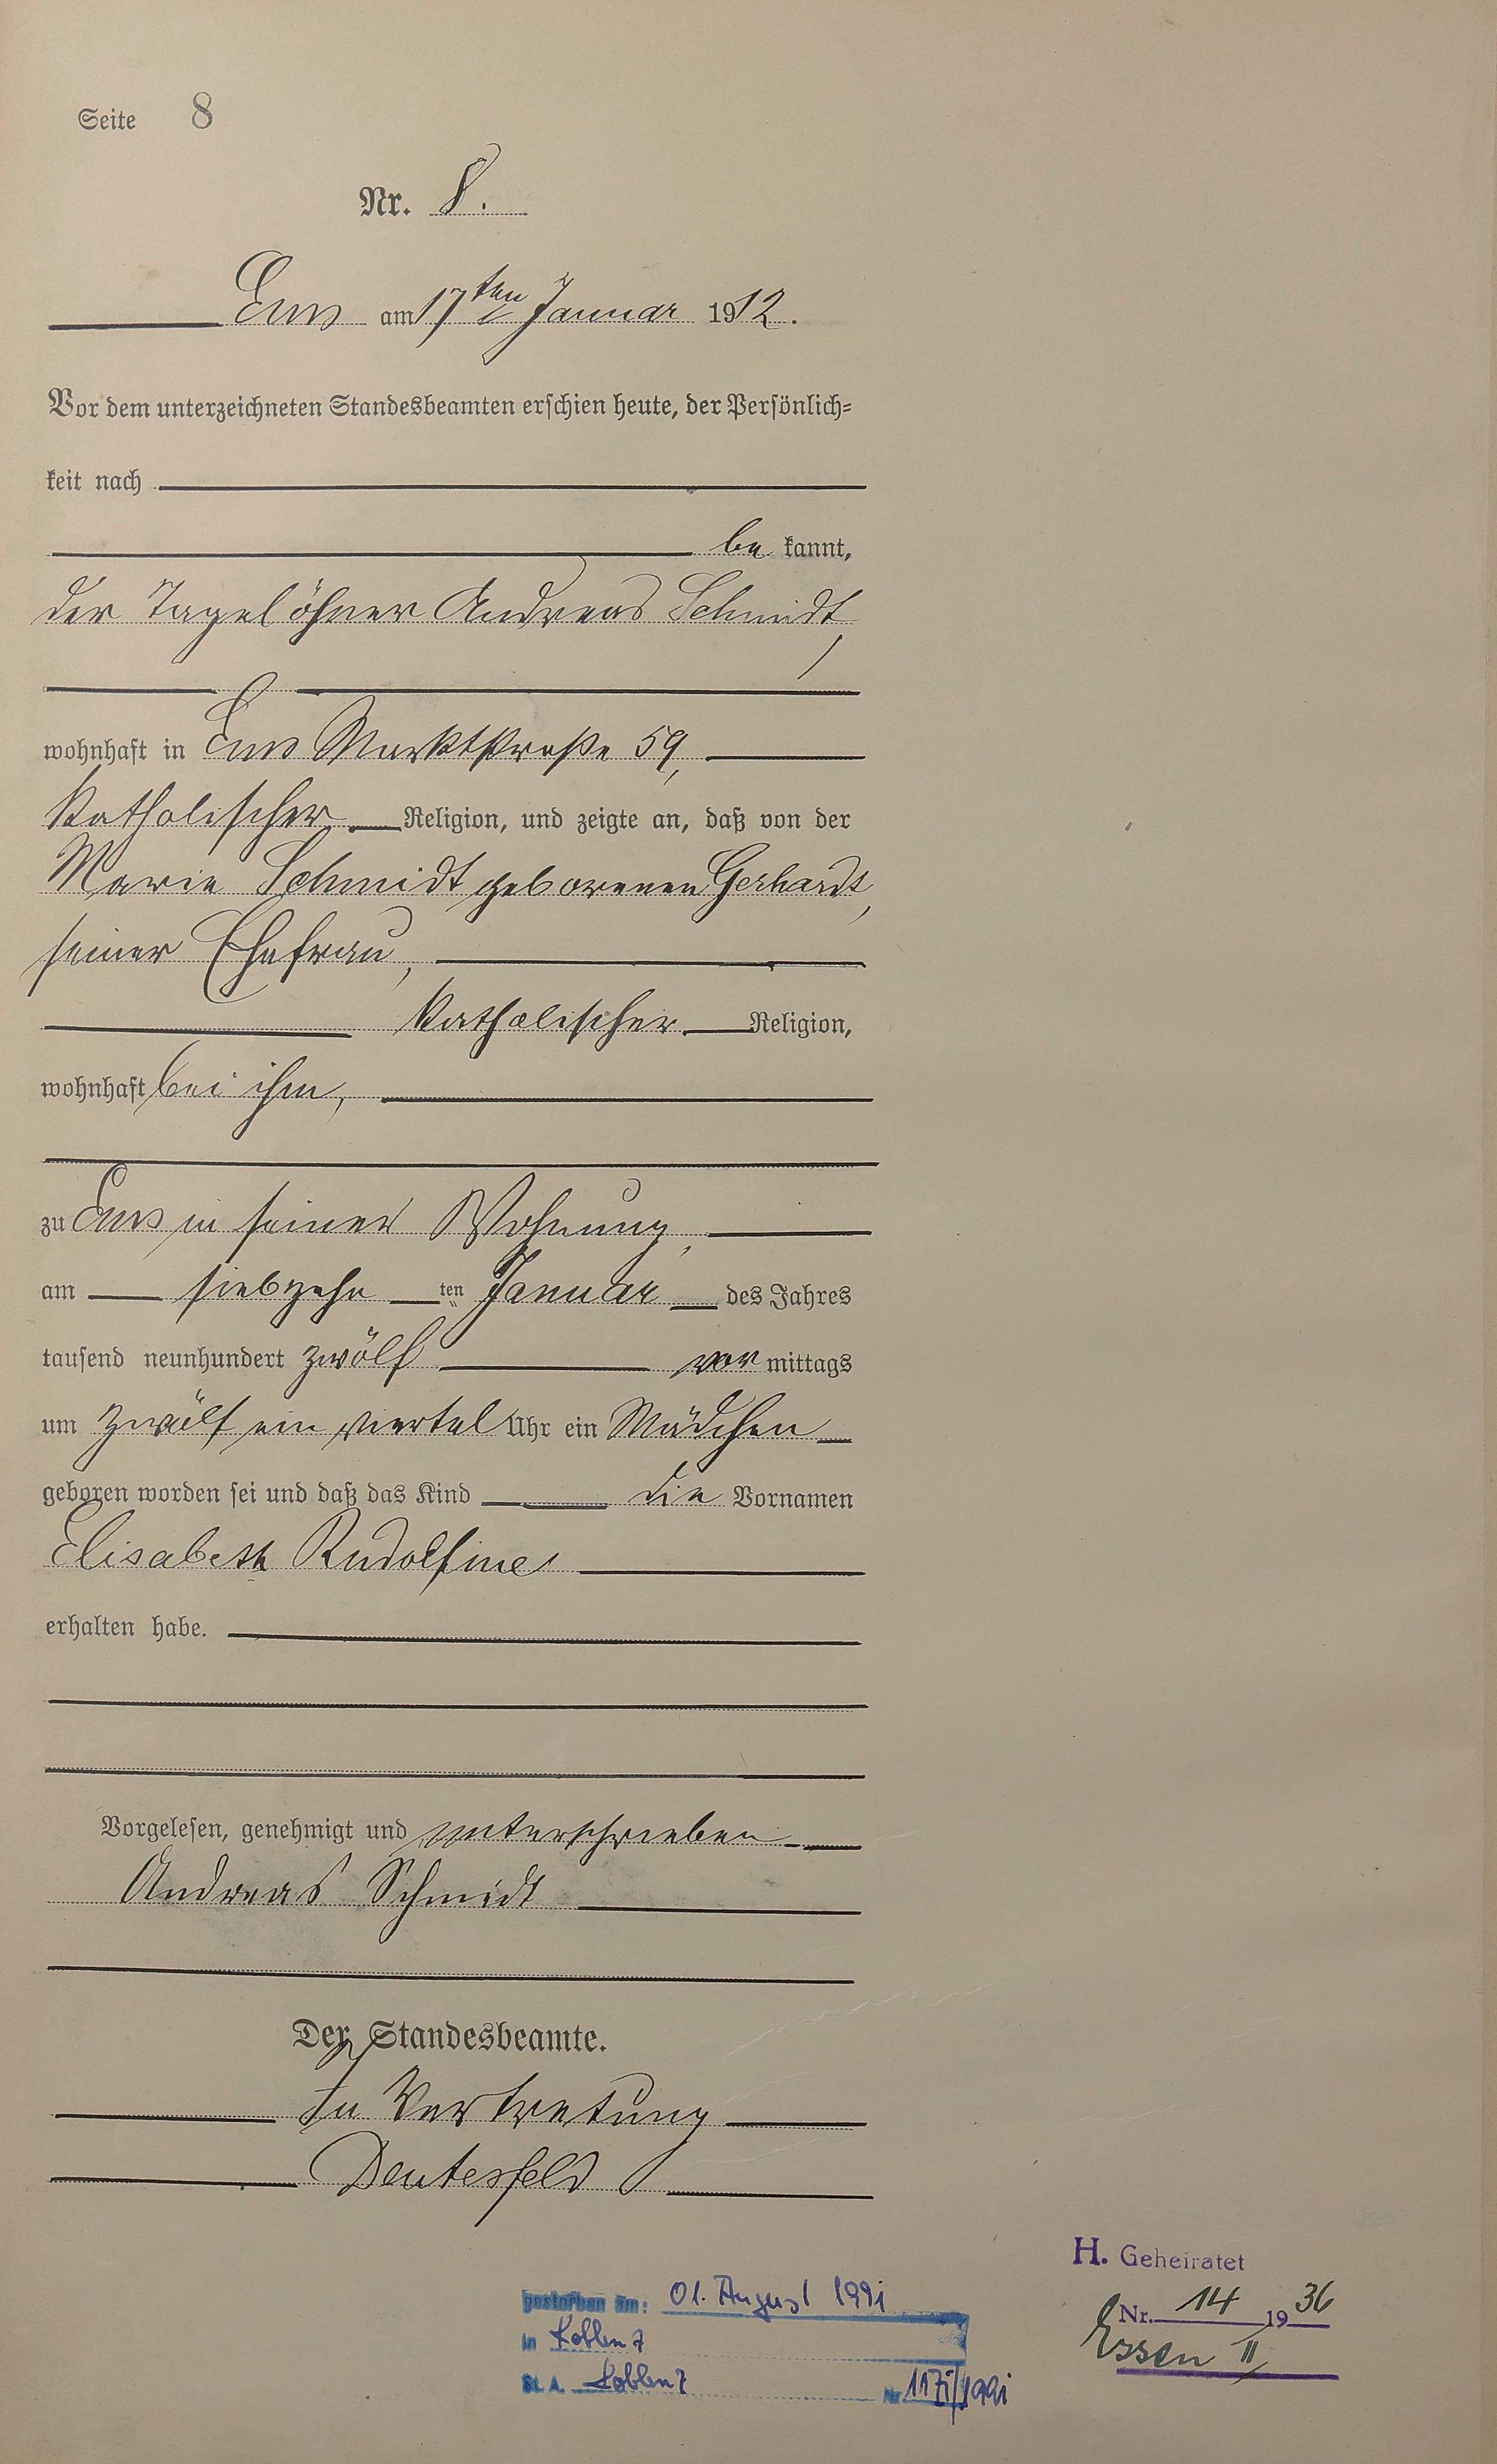 Seite 8
Nr. 8.
Ems am 17ten Januar 1912.
Vor dem unterzeichneten Standesbeamten erschien heute, der Persönlich=
keit nach
be kannt,
der Tagelöhner Andreas Schmidt,
wohnhaft in Ems Marktstraße 59,
katholischer Religion, und zeigte an, daß von der
Marie Schmidt geborenen Gerhardt,
seiner Ehefrau,
katholischer Religion,
wohnhaft bei ihm,
zu Ems in seiner Wohnung,
am siebzehn ten Januar des Jahres
tausend neunhundert zwölf vor mittags
um zwölf ein viertel Uhr ein Mädchen
geboren worden sei und daß das Kind die Vornamen
Elisabeth Rudolfine
erhalten habe.
Vorgelesen, genehmigt und unterschrieben
Andreas Schmidt
Der Standesbeamte.
In Vertretung
Deutesfeld
H. Geheiratet
Nr. 14 1936
Essen II
gestorben am: 01. August 1991
in Koblenz
St. A. Koblenz Nr.